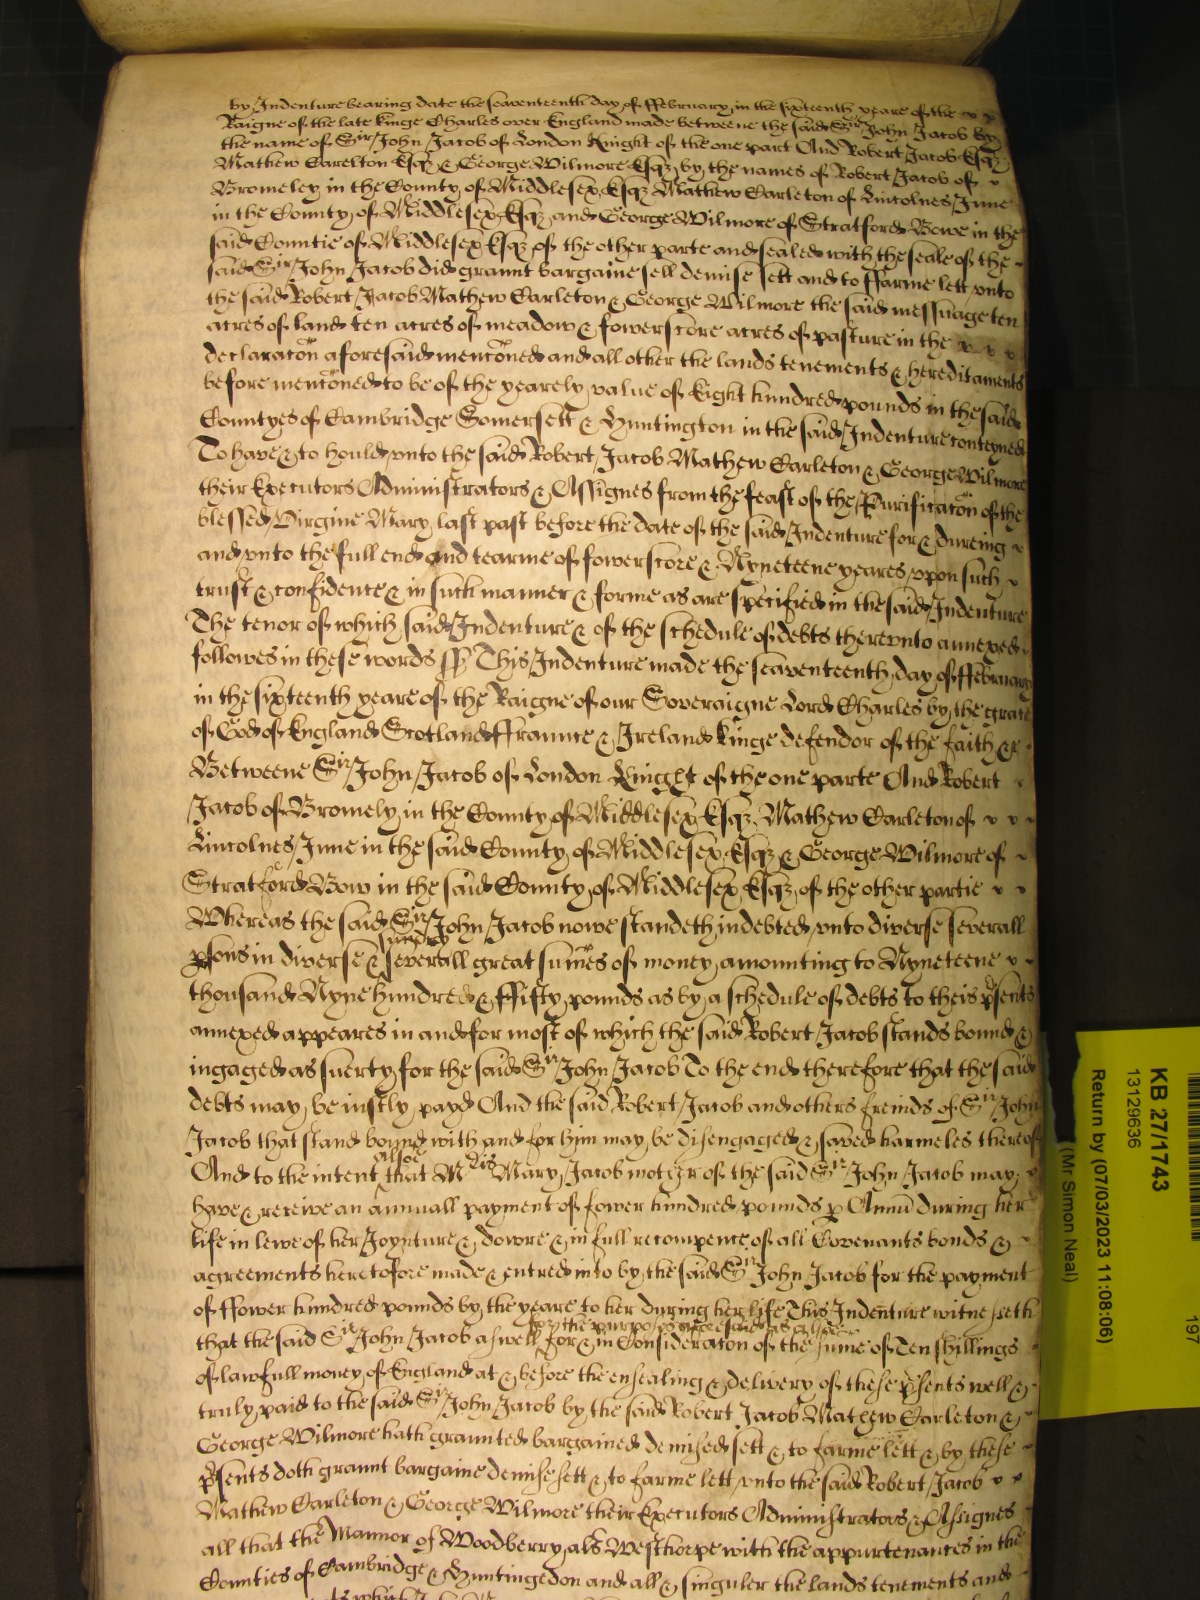 by Indenture bearing date the seaventeenth day of ffebruary in the sixteenth yeare of the
Raigne of the late kinge Charles over England made betweene the said Sir John Jacob by
the name of Sir John Jacob of London Knight of the one part And Robert Jacob Esqr
Mathew Carelton Esqr & George Wilmore Esqr by the names of Robert Jacob of
Bromeley in the County of Middlesex Esqr Mathew Carleton of Lincolnes Inne
in the County of Middlesex Esqr and George Wilmore of Stratford Bowe in the
said Countie of Middlesex Esqr of the other parte and sealed with the seale of the
said Sir John Jacob did graunt bargaine sell demise sett and to ffarme lett unto
the said Robert Jacob Mathew Carleton & George Wilmore the said messuage ten
acres of land ten acres of meadow & fowerscore acres of pasture in the
declaracon aforesaid menconed and all other the lands tenements & hereditaments
before menconed to be of the yearely value of Eight hundred pounds in the said
Countyes of Cambridge Somersett & Huntington in the said Indenture conteyned
To have & to hould unto the said Robert Jacob Mathew Carleton & George Wilmore
their Executors Administrators & Assignes from the feast of the Purificacon of the
blessed Virgine Mary last past before the date of the said Indenture for & dureing
and unto the full end and tearme of fowerscore & Nyneteene yeares upon such
trust & confidence & in such manner & forme as are specified in the said Indenture
The tenor of which said Indenture & of the schedule of debts thereunto annexed
followes in these words ss This Indenture made the seaventeenth day of ffebruary
in the sixteenth yeare of the Raigne of our Soveraigne Lord Charles by the grace
of God of England Scotland ffraunce & Ireland kinge defendor of the faith &c
Betweene Sir John Jacob of London Knight of the one parte And Robert
Jacob of Bromely in the County of Middlesex Esqr Mathew Carleton of
Lincolnes Inne in the said County of Middlesex Esqr & George Wilmore of
Stratford Bow in the said County of Middlesex Esqr of the other partie
Whereas the said Sir John Jacob nowe standeth indebted unto diverse severall
sundry
psons in diverse & severall great sumes of money amounting to Nyneteene
thousand Nyne hundred & ffifty pounds as by a schedule of debts to theis psents
annexed appeares in and for most of which the said Robert Jacob stands bound &
ingaged as suerty for the said Sir John Jacob To the end therefore that the said
debts may be iustly payd And the said Robert Jacob and others freinds of Sir John
Jacob that stand bound with and for him may be disengaged & saved harmeles thereof
alsoe
And to the intent that Mdis Mary Jacob mother of the said Sir John Jacob may
have & receive an annuall payment of fower hundred pounds p Annu during her
life in lewe of her Joynture & dowre & in full recompence of all Covenants bonds &
agreements heretofore made & entred into by the said Sir John Jacob for the payment
of ffower hundred pounds by the yeare to her during her life This Indenture witnesseth
for the purposes aforesaid as alsoe
that the said Sir John Jacob aswell for & in Consideracon of the sume of Ten shillings
of lawfull money of England at & before the ensealing & delivery of these psents well &
truly paid to the said Sir John Jacob by the said Robert Jacob Mathew Carleton &
George Wilmore hath graunted bargained demised sett & to farme lett & by these
psents doth graunt bargaine demise sett & to farme lett unto the said Robert Jacob
Mathew Carleton & George Wilmore their Executors Administrators & Assignes
all that the Mannor of Woodberry als Westhorpe with the appurtenances in the
Counties of Cambridge & Huntingedon and all & singuler the lands tenements and
KB 27/1743
13129636
Return by (07/03/2023 11:08:06)
(Mr Simon Neal)
197